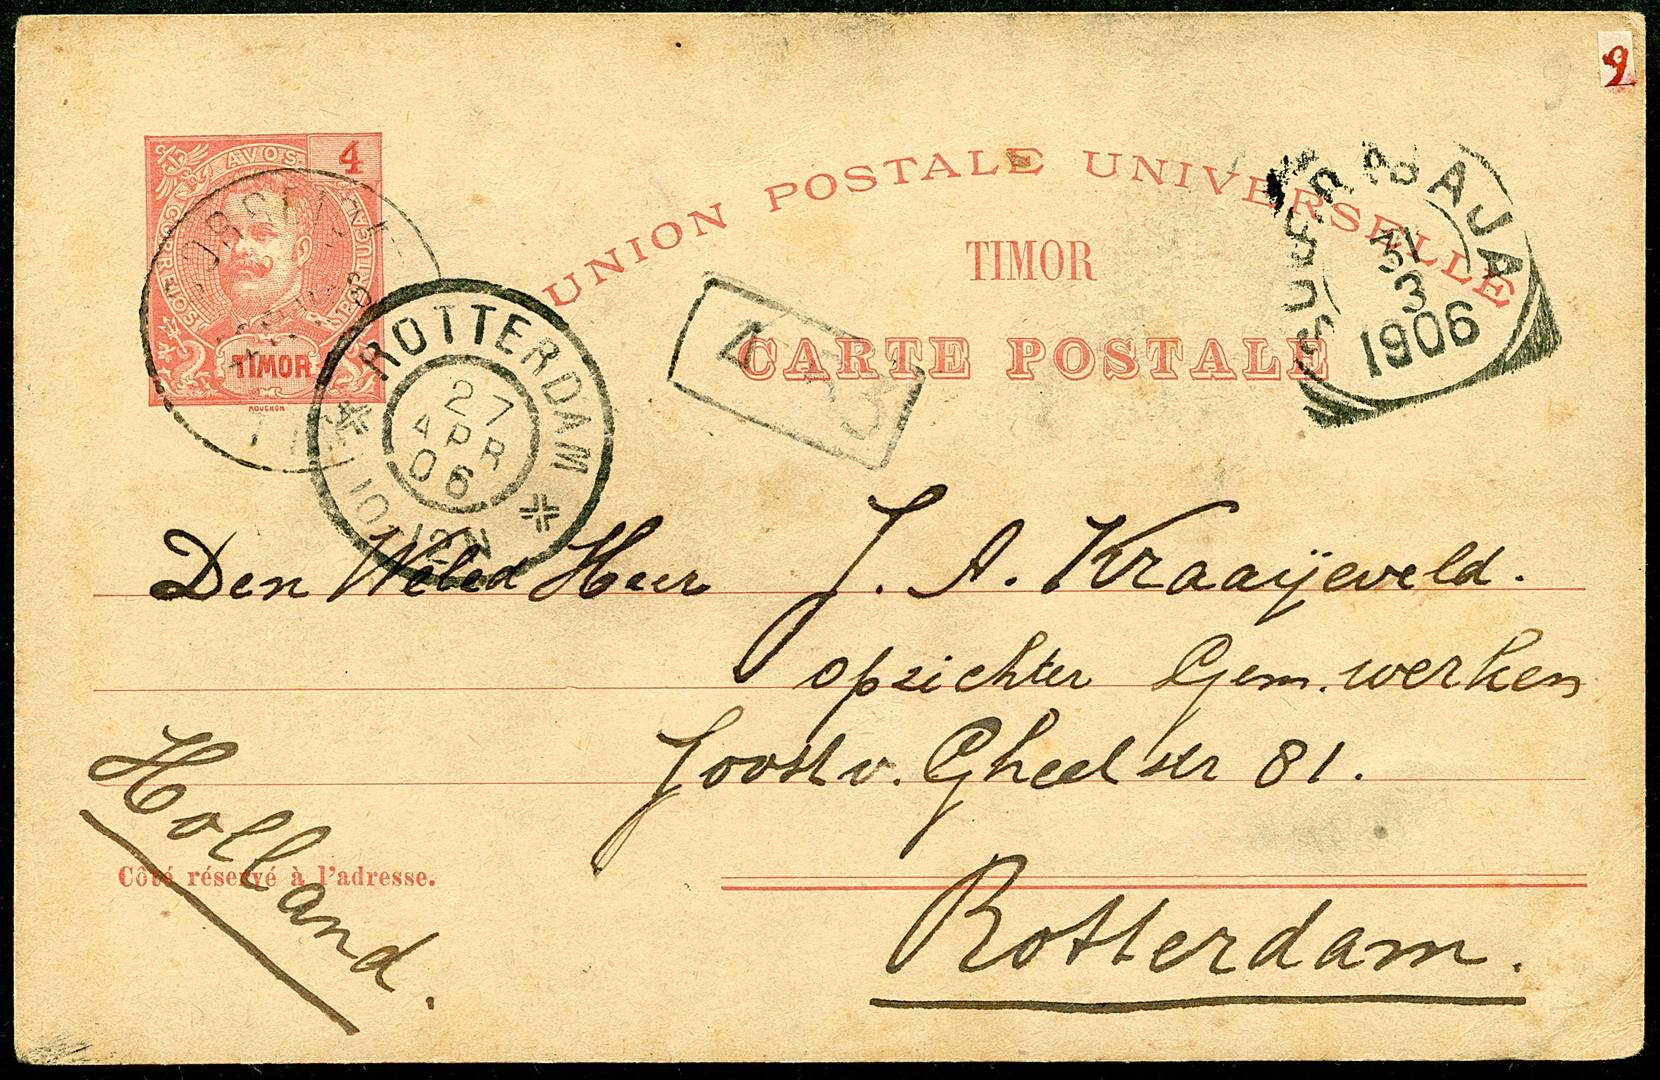 9
AVOS 4
CORREIOS
TIMOR
MOUCHON
UNION POSTALE UNIVERSELLE
TIMOR
CARTE POSTALE
SOERABAJA
3
1906
ROTTERDAM
27
APR
06
Den Weled Heer J. A. Kraaÿeveld.
opzichter Gem. werken
Joost v. Gheel str 81.
Rotterdam.
Holland.
Côté réservé à l'adresse.